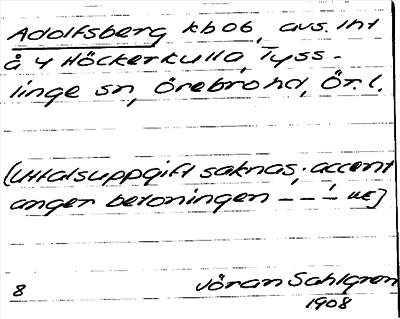 Adolfsberg kb06, avs. lht
å 4 Höckerkulla, Tyss-
linge sn, Örebro hd, Ör. l.
(Uttalsuppgift saknas; accent
anger betoningen
8 Jöran Sahlgren
1908